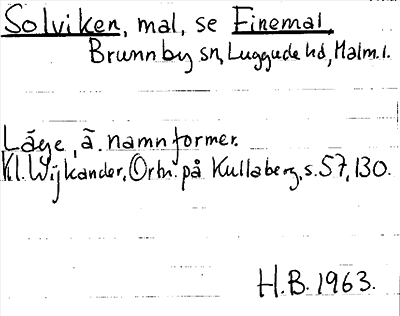 Solviken, mal, se Finemal.
Brunnby sn, Luggude hd, Malm.l.
Läge, ä. namnformer.
Kl. Wijkander, Ortn. på Kullaberg, s. 57, 130.
H.B. 1963.